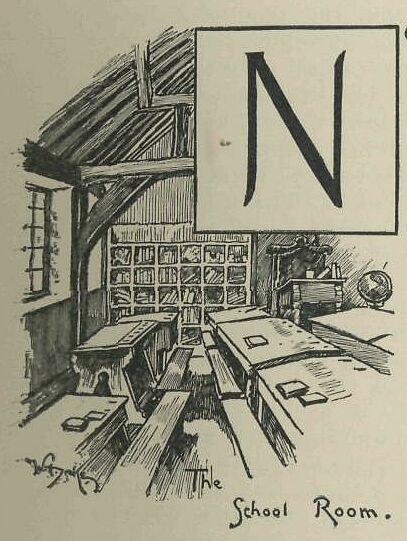 N
The
School Room.